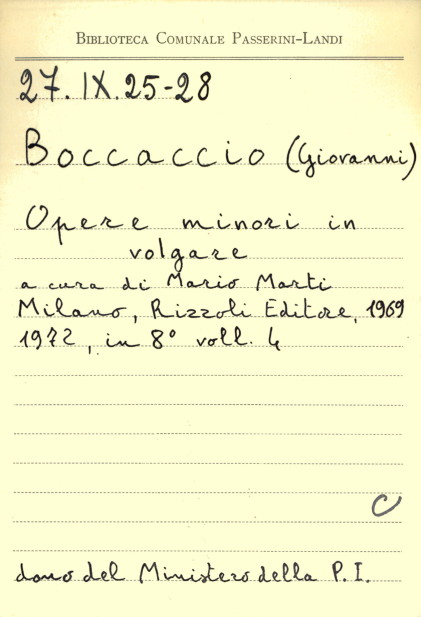 BIBLIOTECA COMUNALE PASSERINI-LANDI
27. IX. 25-28
Boccaccio (Giovanni)
Opere minori in
volgare
a cura di Mario Marti
Milano, Rizzoli Editore, 1969
1972, in 8° voll. 4
C
dono del Ministero della P. I.